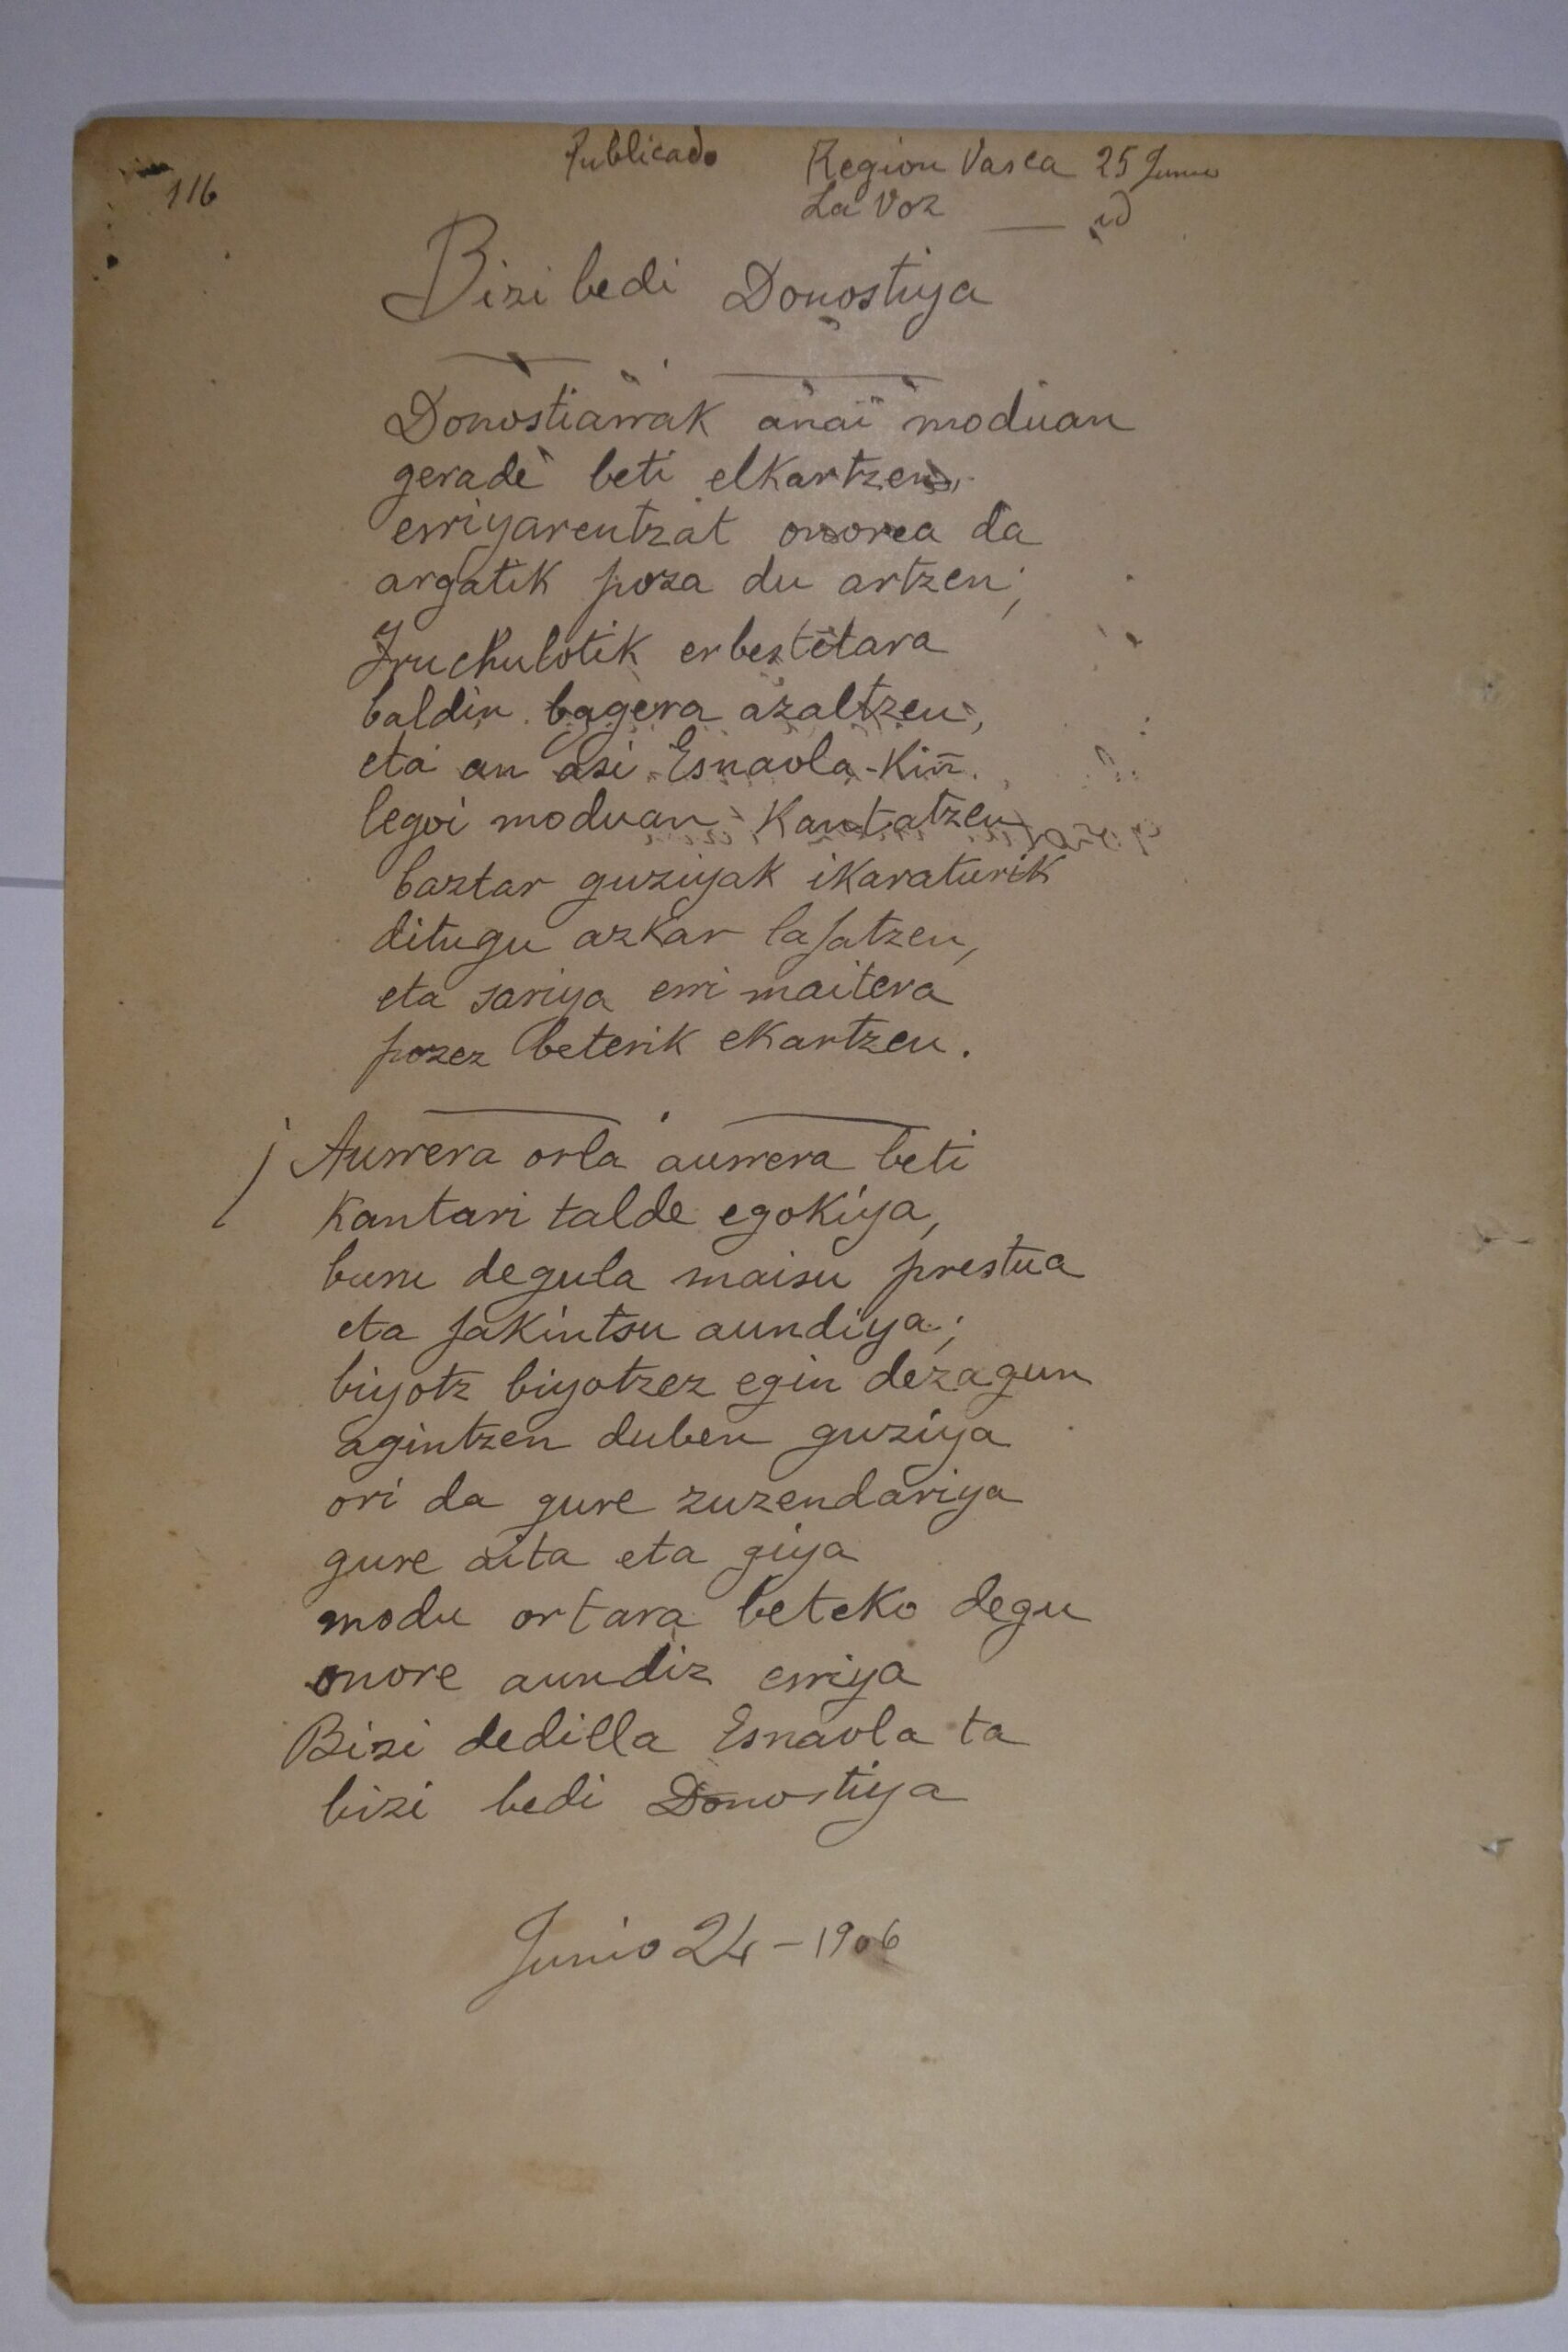 116
Publicado Region Vasca 25 Junio
La Voz — id
Bizi bedi Donostiya
Donostiarrak anai moduan
gerade beti elkartzen,
erriyarentzat onorea da
argatik poza du artzen;
Iruchulotik erbestetara
baldin bagera azaltzen,
eta an asi Esnaola-Kiñ.
legoi moduan Kantatzen
baztar guziyak ikaraturik
ditugu azkar lasatzen,
eta sariya erri maitera
pozez beterik ekartzen.
¡ Aurrera orla aurrera beti
Kantari talde egokiya,
buru degula maisu prestua
eta jakintsu aundiya;
biyotz biyotzez egin dezagun
agintzen duben guziya
ori da gure zuzendariya
gure aita eta giya
modu ortara beteko degu
onore aundiz erriya
Bizi dedilla Esnaola ta
bizi bedi Donostiya
Junio 24-1906